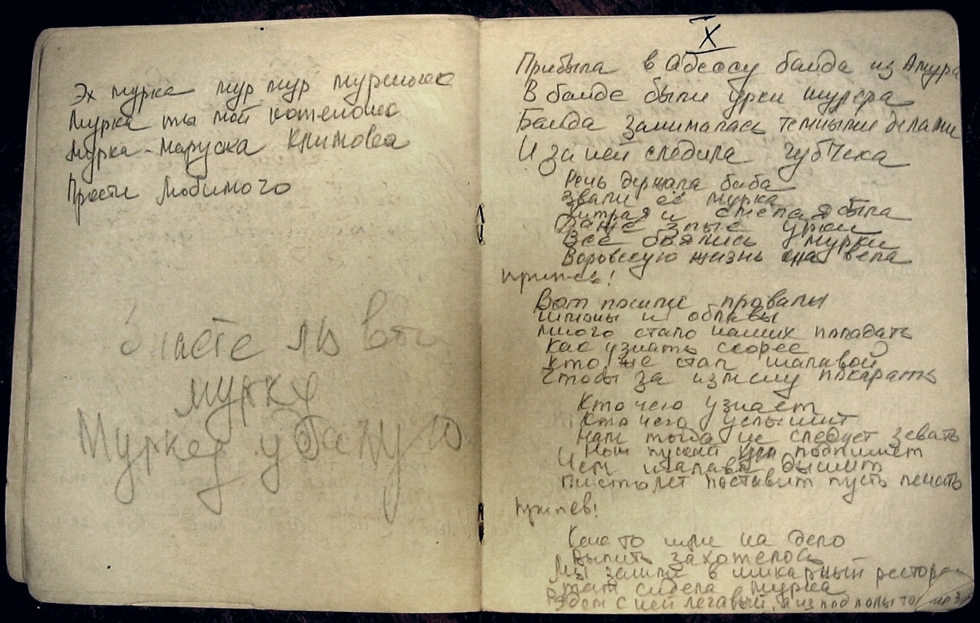 Эх мурка мур мур муреночек
Мурка ты мой котеночек
Мурка-Маруська Климова
Прости любимого
Знаете ль вы
мурку
Мурку удалую
X
Прибыла в Адессу банда из Амура
В банде были урки шулера
Банда занималась темными делами
И за ней следила губЧека
Речь держала баба
Звали её мурка
Хитрая и смелая была
Даже злые урки
Все боялись мурки
Воровскую жизнь она вела
Припев!
Вот пошли провалы
шмоны и облавы
много стало наших попадать
Как узнать скорее
кто же стал шалавой
Чтобы за измену покарать
Кто чего узнает
Кто чего услышит
Нам тогда не следует зевать
Нож пускай подпишет
Чем шалава дышит
Пистолет поставит пусть печать
Припев!
Как то шли на дело
Выпить захотелось
Мы зашли в шикарный ресторан
Там сидела мурка
Рядом с ней легавый, а из под полы то